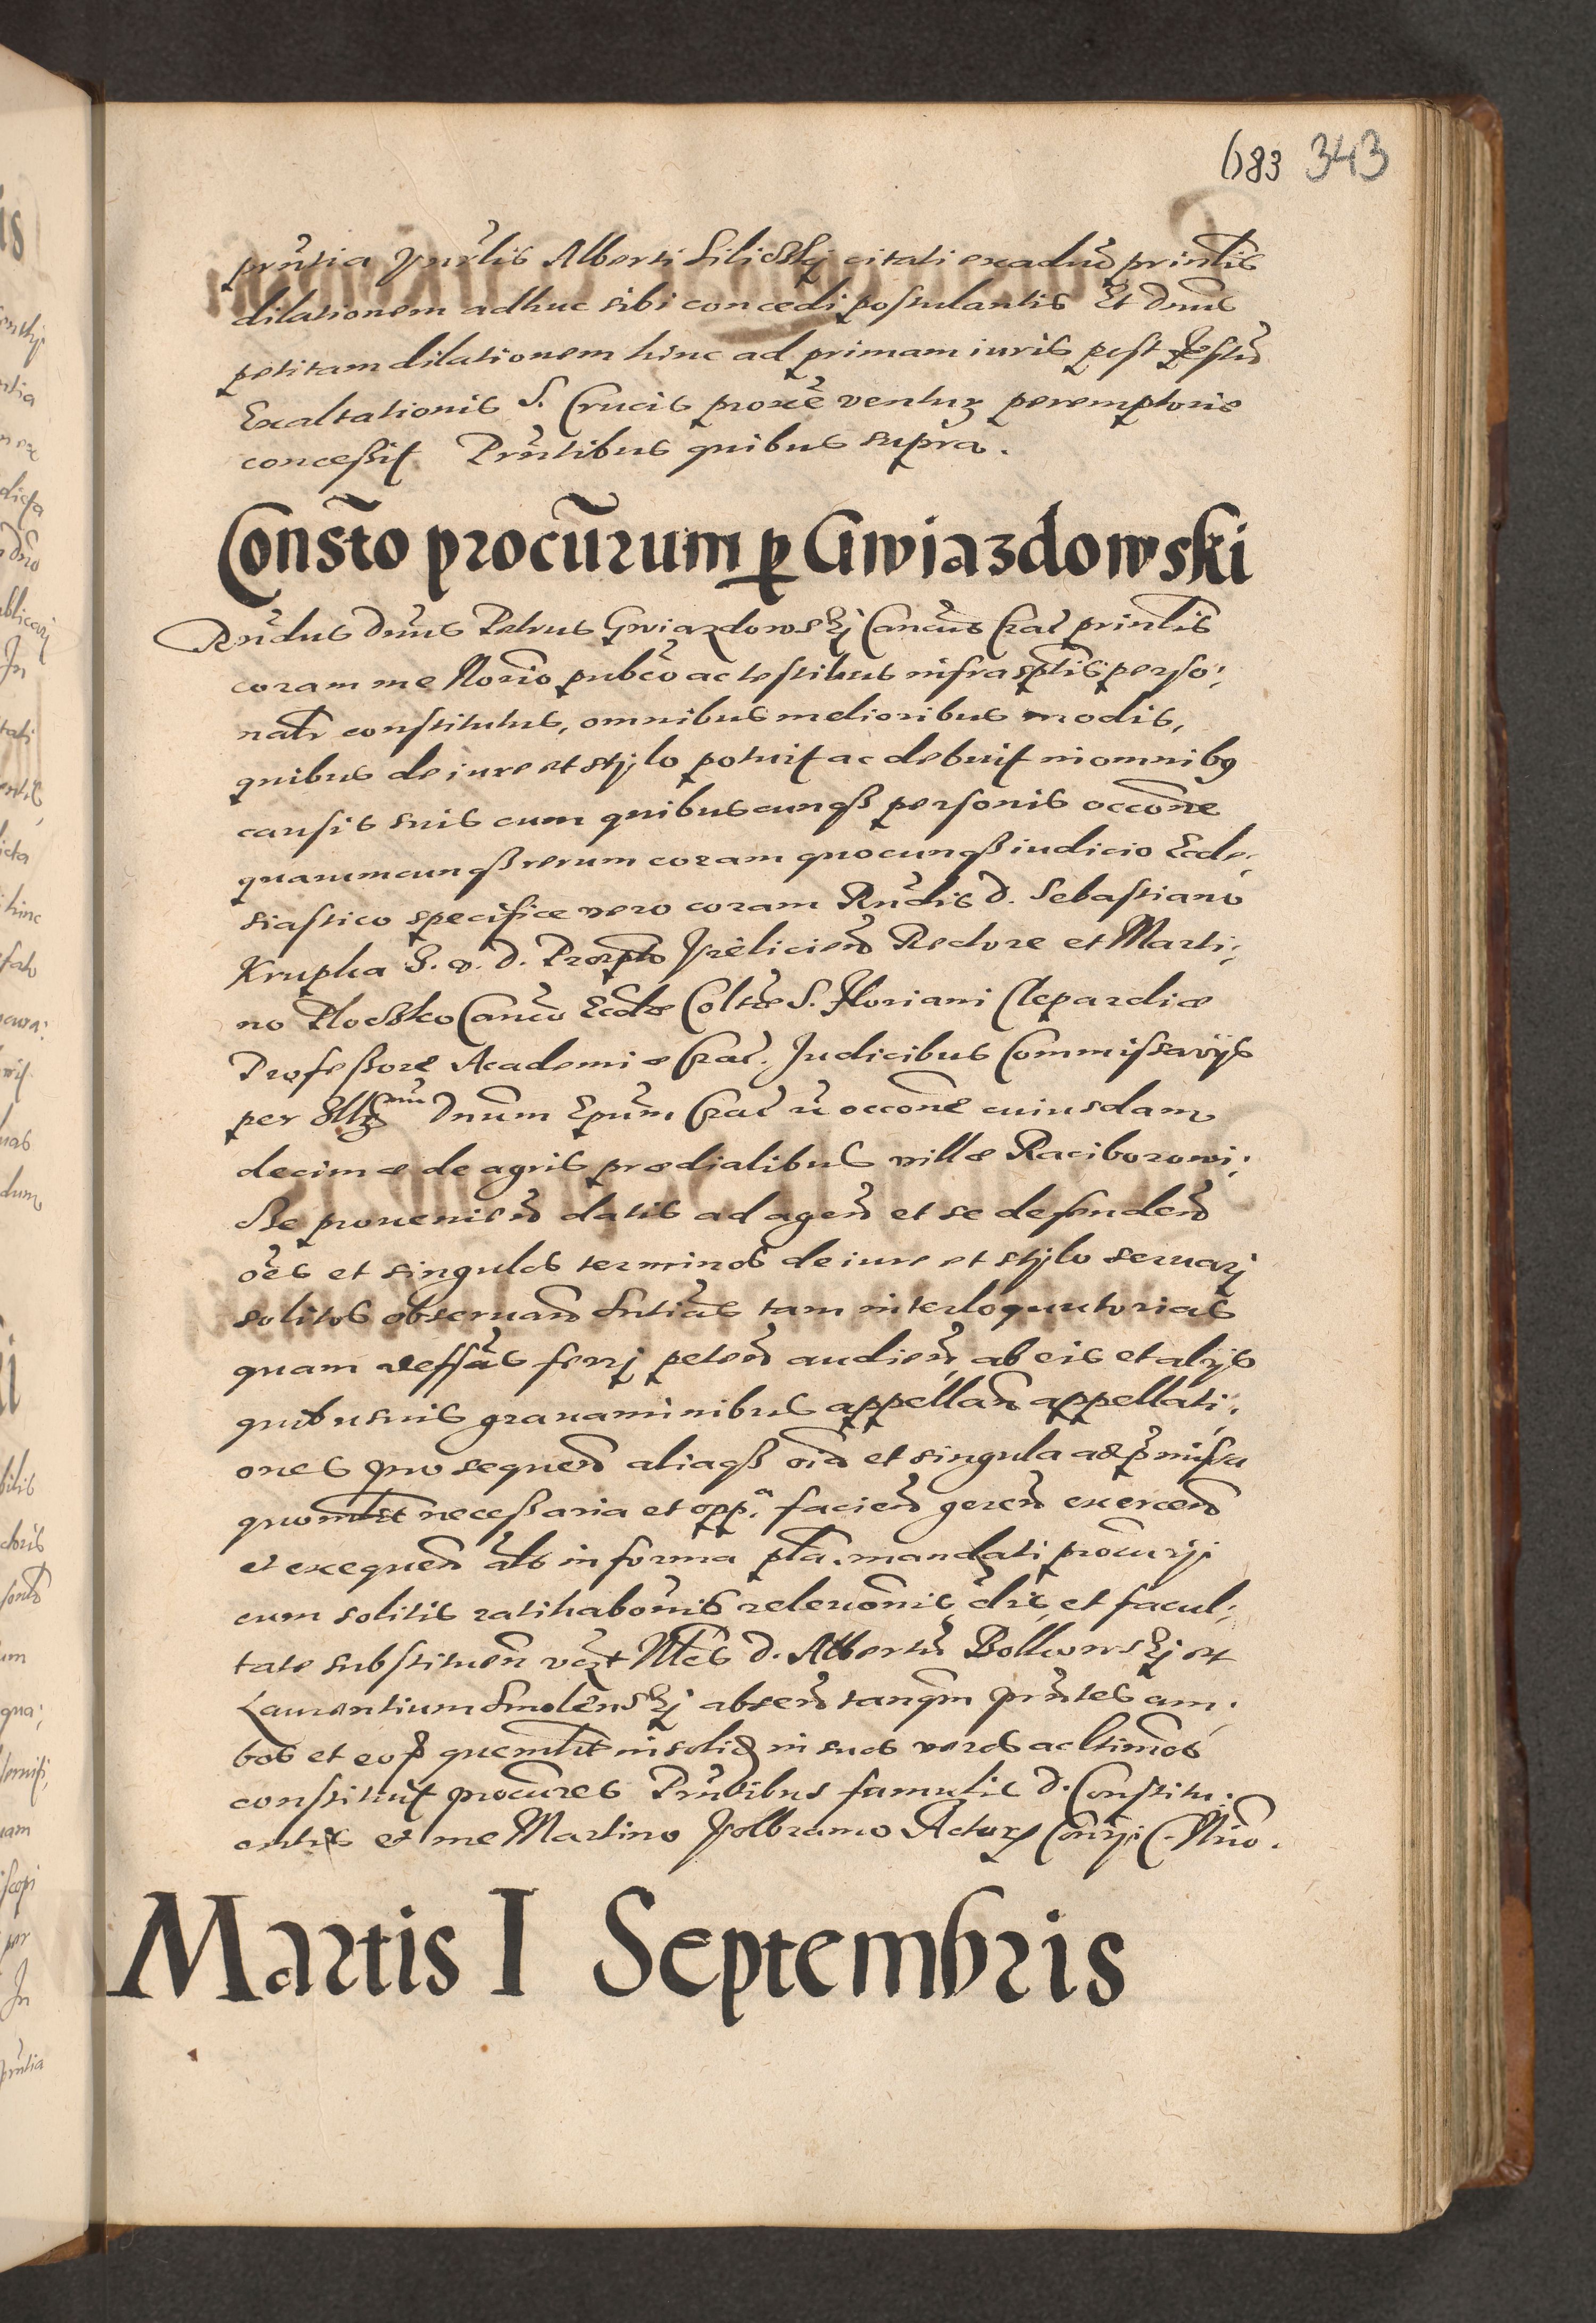 683 343
prñtia Jurlis Alberti Siliczky citati ex aduõ printlis
dilationem adhuc sibi concedi postulantis Et Dnus
petitam dilationem hinc ad primam iuris post festũ
Exaltationis S. Crucis proxẽ ventuȝ peremptorie
conceßit Prñtibus quibus supra.
Consto procurum p Gwiazdowski
Rndus Dnus Petrus Gwiazdowsky Cancus Crac printlis
coram me Norio pubco ac testibus infrasptis perso:
nalr constitutus, omnibus melioribus modis,
quibus de iure et stylo potuit ac debuit in omnibꝯ
causis suis cum quibuscunqß personis occõne
quarumcunqß rerum coram quocunqß iudicio Eccle:
siastico specifice vero coram Rndis D. Sebastiano
Krupka S. D. Prepto Vieliciens Rectore et Marti:
no Ploczko Canco Eccliæ Coltæ S. Floriani Clepardiæ
Profeßore Academiæ Crac. Judicibus Commissarijs
per Illȝmũ Dnum Epum Crac occõne cuiusdam
decimæ de agris prædialibus villæ Raciborowi:
cze prouenien datis ad agen et se defenden
oẽs et singulos terminos de iure et stylo seruarj
solitos obseruan sntias tam interloquutorias
quam deffas ferrj peten audien, ab eis et alijs
quibusuis grauaminibus appellan appellati:
ones prosequen aliaqß oia et singula ad pmissa
quomlbt necessaria et oppa facien geren exercen
et exequen als in forma pla. mandati procurij
cum solitis ratihabõnis releuõnis clis, et facul:
tate substituen vczt Nles D. Albertũ Bollwowsky et
Laurentium Smolensky absen tanqm prñtes am:
bos et eoꝝ quemlbt in solid in suos veros ac ltimos
constituit procũres Prntibus famulis D. Constitu:
entis et me Martino Volbramo Actoꝝ Conrij C. Nrio.
Martis I Septembris